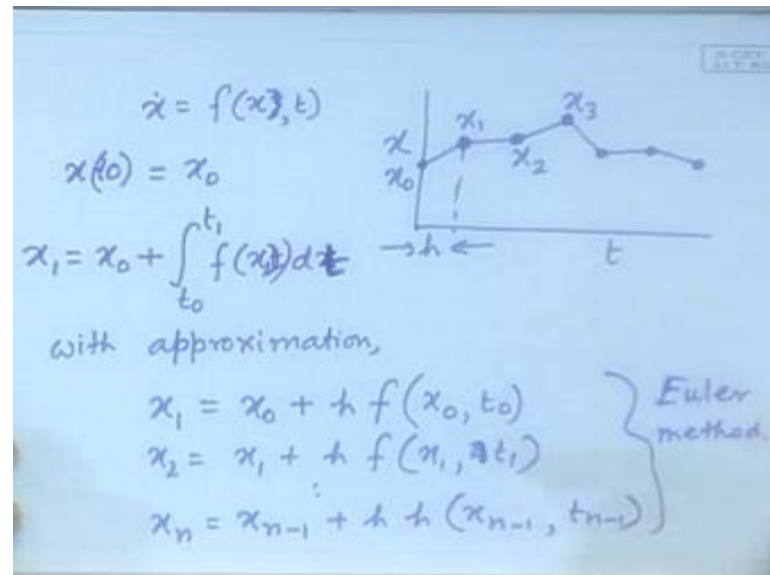 ẋ = f(x, t)
x(t0) = x₀
x₁ = x₀ + ∫_{t₀}^{t₁} f(x,t) dt
x
x₀
x₁
x₂
x₃
→ h ←
t
with approximation,
x₁ = x₀ + h f(x₀, t₀)
x₂ = x₁ + h f(x₁, t₁)
⋮
xₙ = xₙ₋₁ + h h (xₙ₋₁, tₙ₋₁)
Euler
method.